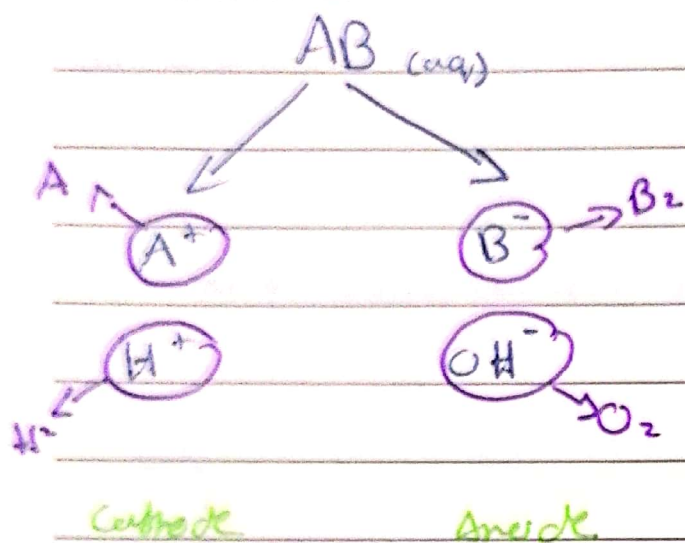 AB (aq)
A
A⁺ B⁻ B₂
H⁺ OH⁻
H² O₂
Cathode Anode